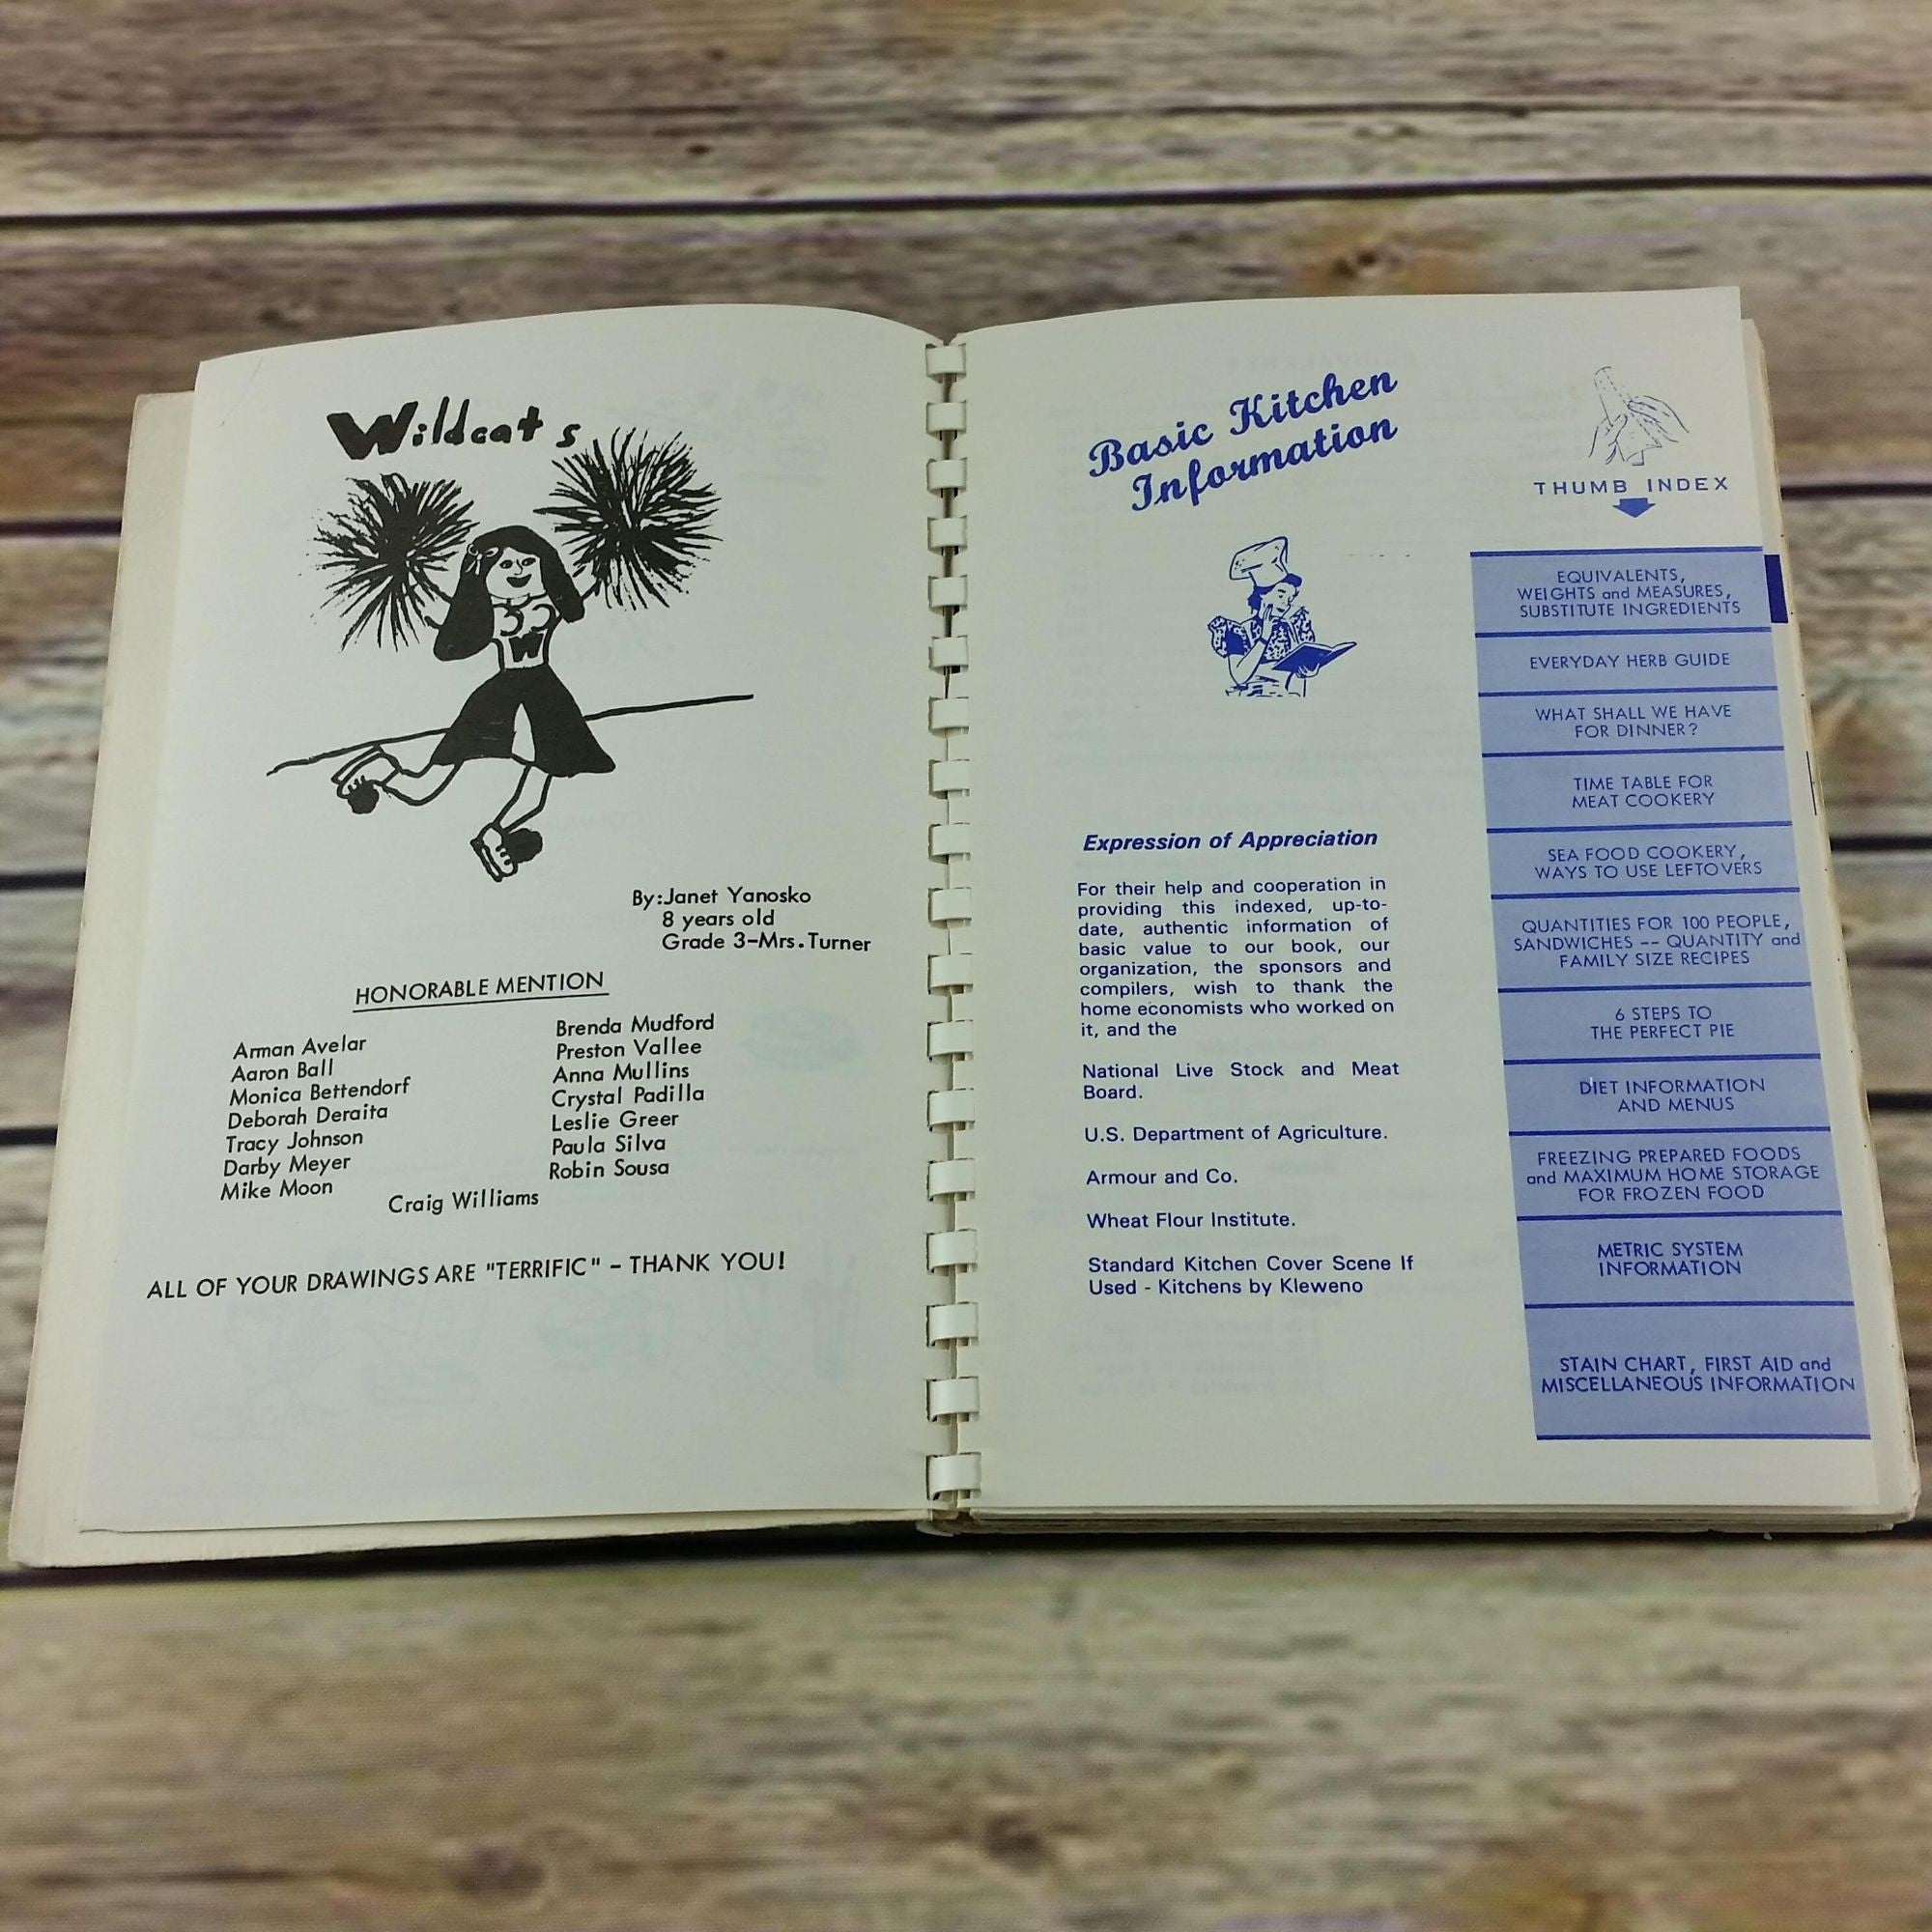 Wildcats
W
By:Janet Yanosko
8 years old
Grade 3-Mrs.Turner
HONORABLE MENTION
Arman Avelar
Aaron Ball
Monica Bettendorf
Deborah Deraita
Tracy Johnson
Darby Meyer
Mike Moon
Brenda Mudford
Preston Vallee
Anna Mullins
Crystal Padilla
Leslie Greer
Paula Silva
Robin Sousa
Craig Williams
ALL OF YOUR DRAWINGS ARE "TERRIFIC" - THANK YOU!
Basic Kitchen
Information
Expression of Appreciation
For their help and cooperation in
providing this indexed, up-to-
date, authentic information of
basic value to our book, our
organization, the sponsors and
compilers, wish to thank the
home economists who worked on
it, and the
National Live Stock and Meat
Board.
U.S. Department of Agriculture.
Armour and Co.
Wheat Flour Institute.
Standard Kitchen Cover Scene If
Used - Kitchens by Kleweno
THUMB INDEX
EQUIVALENTS,
WEIGHTS and MEASURES,
SUBSTITUTE INGREDIENTS
EVERYDAY HERB GUIDE
WHAT SHALL WE HAVE
FOR DINNER?
TIME TABLE FOR
MEAT COOKERY
SEA FOOD COOKERY,
WAYS TO USE LEFTOVERS
QUANTITIES FOR 100 PEOPLE,
SANDWICHES -- QUANTITY and
FAMILY SIZE RECIPES
6 STEPS TO
THE PERFECT PIE
DIET INFORMATION
AND MENUS
FREEZING PREPARED FOODS
and MAXIMUM HOME STORAGE
FOR FROZEN FOOD
METRIC SYSTEM
INFORMATION
STAIN CHART, FIRST AID and
MISCELLANEOUS INFORMATION